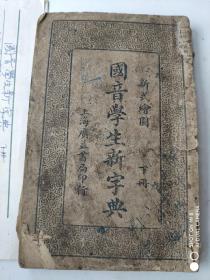 新式繪圖
下冊
國音學生新字典
上海廣益書局印行
國音學生新字典